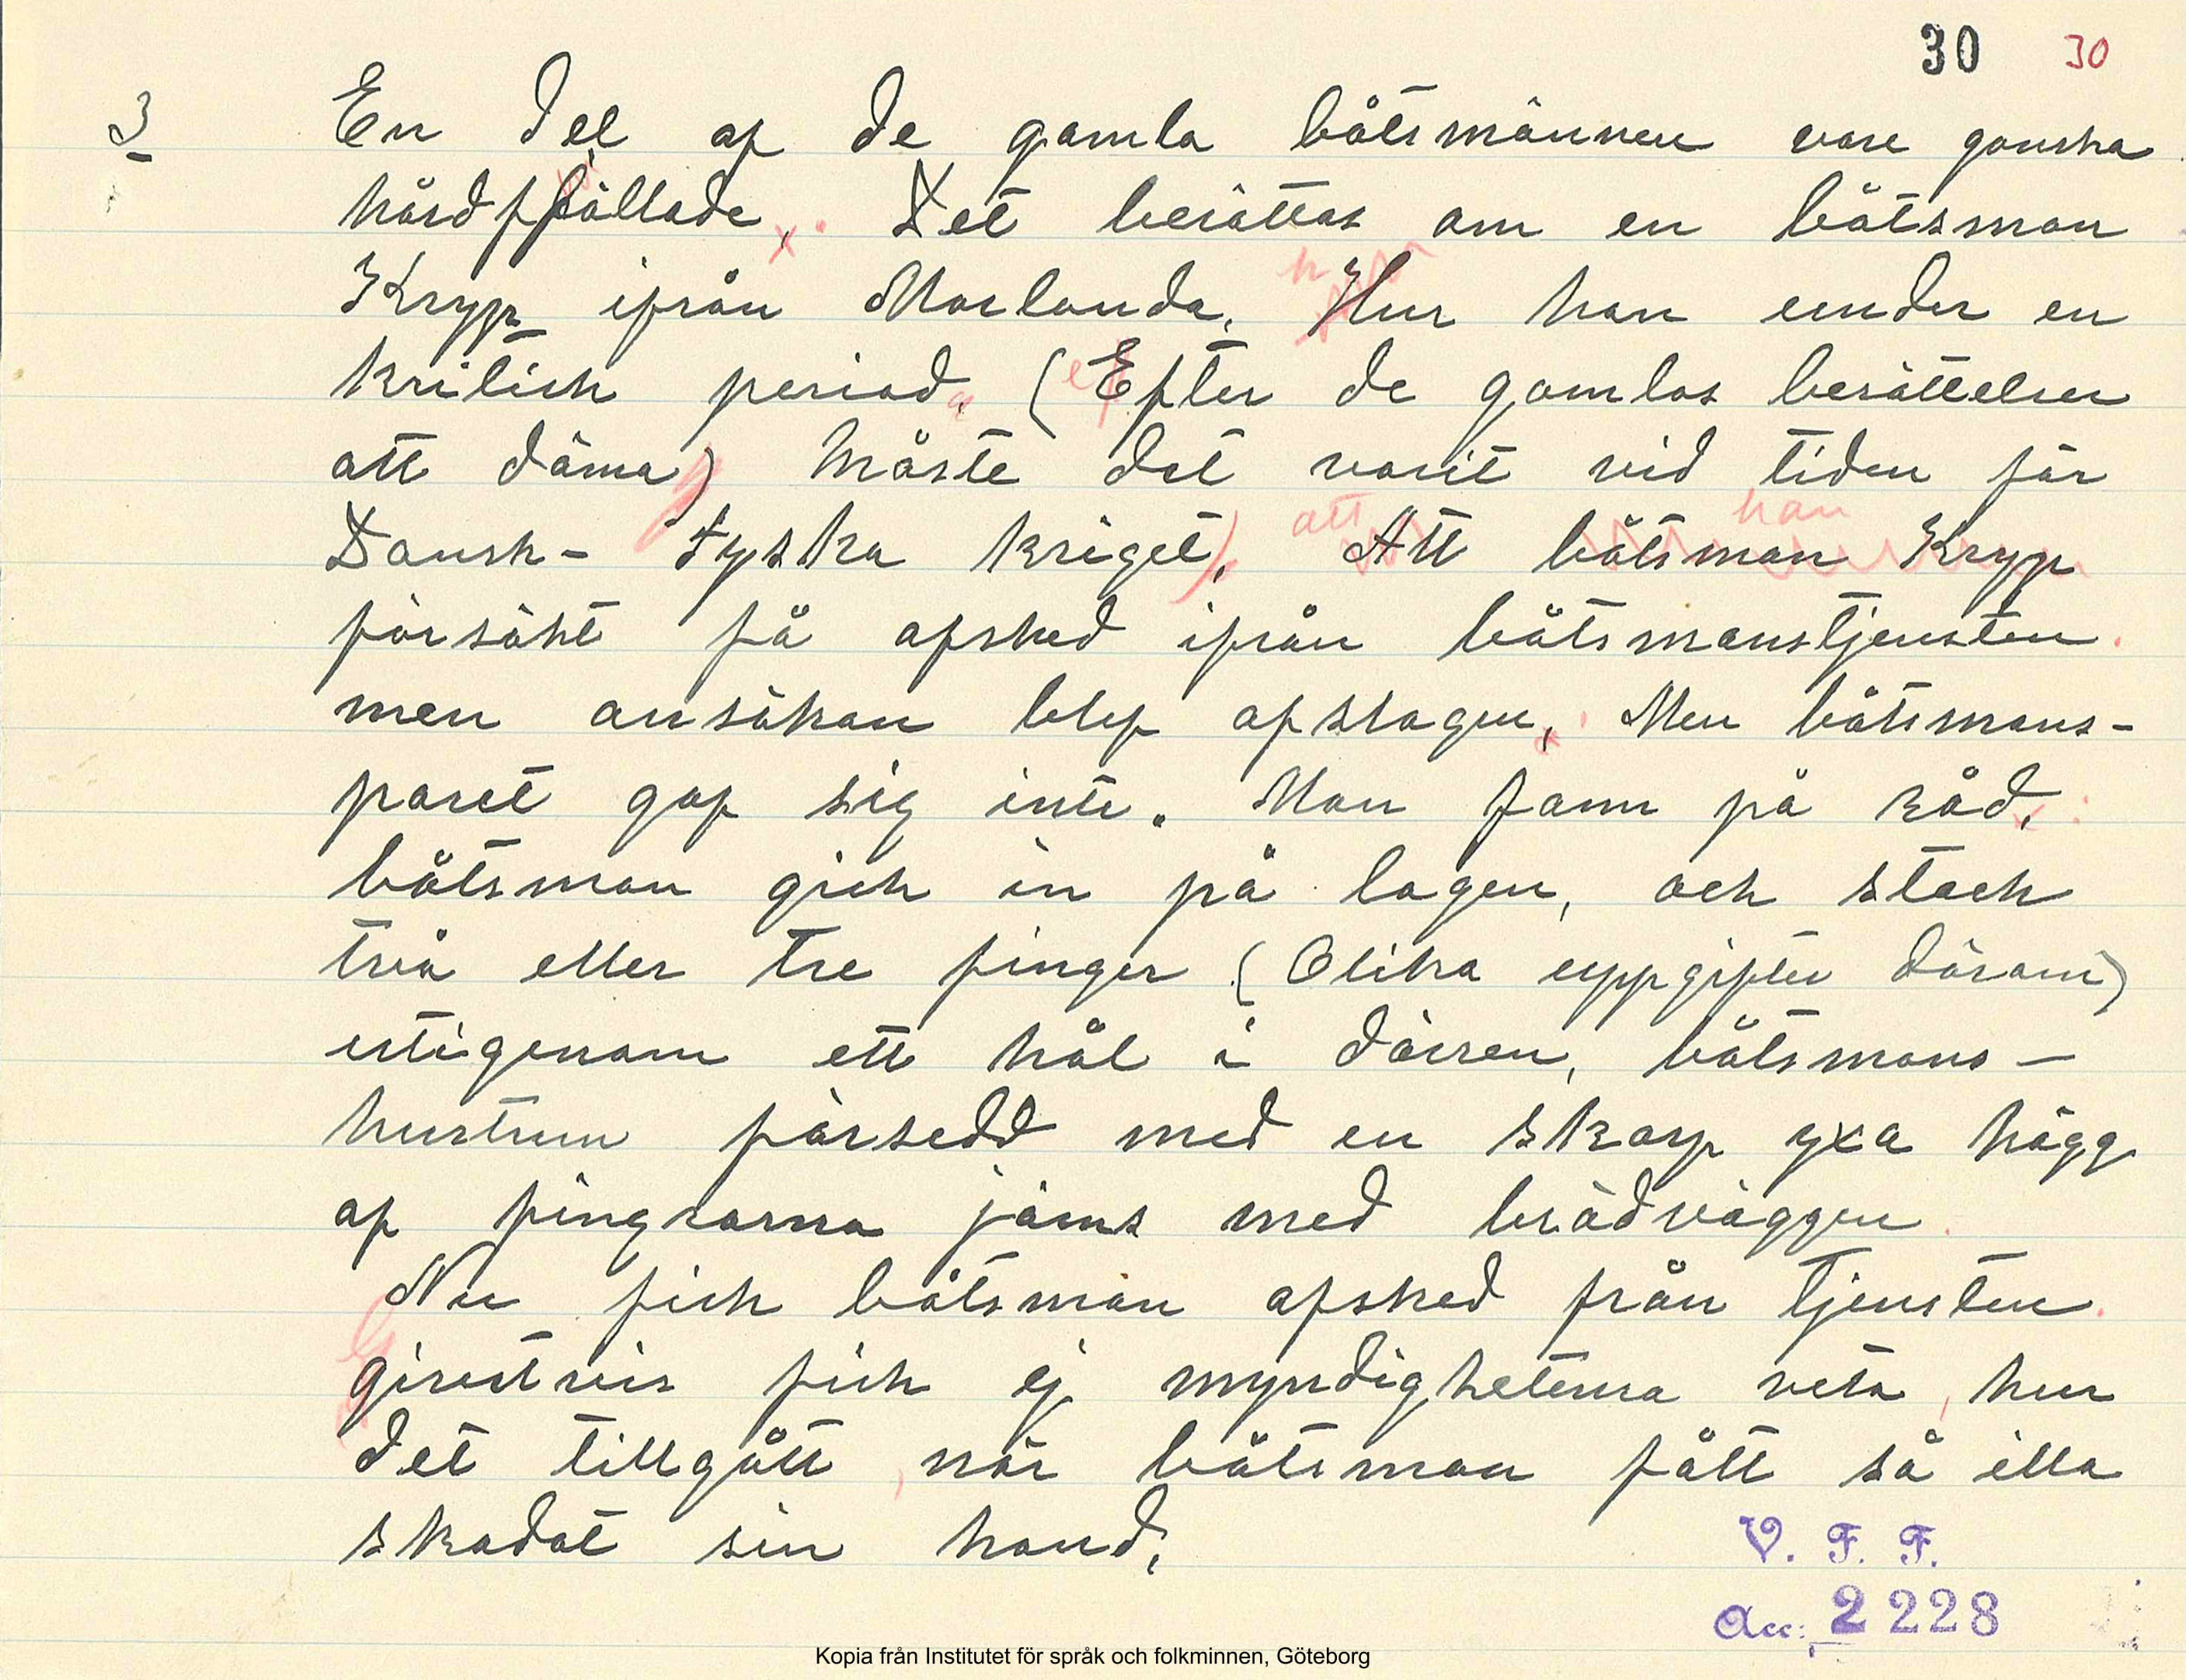 30 30
3 En del af de gamla båtsmännen vore ganska
hårdffjällade, Det berättas om en båtsman
Kryp ifrån Morlanda. Hur han under en
kritisk period, (Efter de gamlas berättelser
att döma) måste det varit vid tiden för
Dansk- tyska kriget, Att båtsman Kryp
försökt få afsked ifrån båtsmanstjensten
men ansökan blef afslagen, Men båtsmans-
paret gaf sig inte. Man fann på råd,
båtsman gick in på logen, och stack
två eller tre finger (Olika uppgifter därom)
utigenom ett hål i dörren, båtsmans-
hustrun försedd med en skarp yxa högg
af fingrarna jäms med brädväggen
Nu fick båtsman afsked från tjensten
givetvis fick ej myndigheterna veta, hur
det tillgått, när båtsman fått så illa
skadat sin hand,
V. F. F.
Acc: 2228
Kopia från Institutet för språk och folkminnen, Göteborg